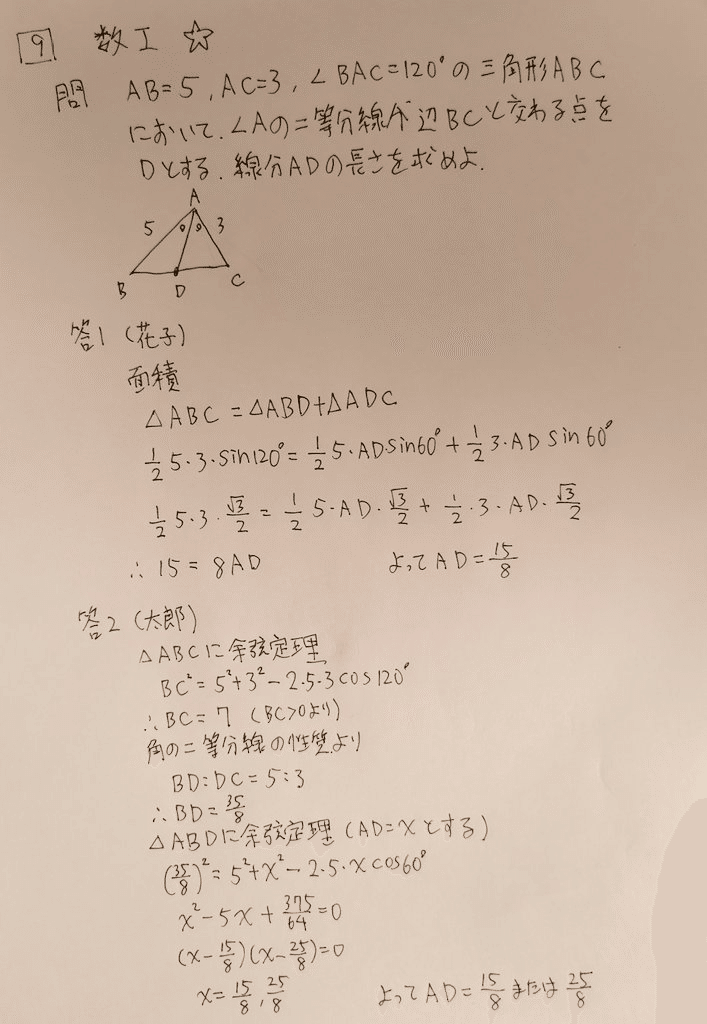 9 数I ☆
問 AB=5, AC=3, ∠BAC=120°の三角形ABC
において、∠Aの二等分線が辺BCと交わる点を
Dとする。線分ADの長さを求めよ.
A
5 3
B D C
答1 (花子)
面積
△ABC = △ABD+△ADC
1/2 5・3・sin120° = 1/2 5・ADsin60° + 1/2 3・AD sin60°
1/2 5・3・√3/2 = 1/2 5・AD・√3/2 + 1/2・3・AD・√3/2
∴ 15 = 8AD よってAD = 15/8
答2 (太郎)
△ABCに余弦定理
BC² = 5²+3²-2・5・3cos120°
∴ BC = 7 (BC>0より)
角の二等分線の性質より
BD:DC = 5:3
∴ BD = 35/8
△ABDに余弦定理 (AD=xとする)
(35/8)² = 5²+x²-2・5・x cos60°
x²-5x+375/64=0
(x-15/8)(x-25/8)=0
x=15/8, 25/8 よってAD=15/8 または 25/8